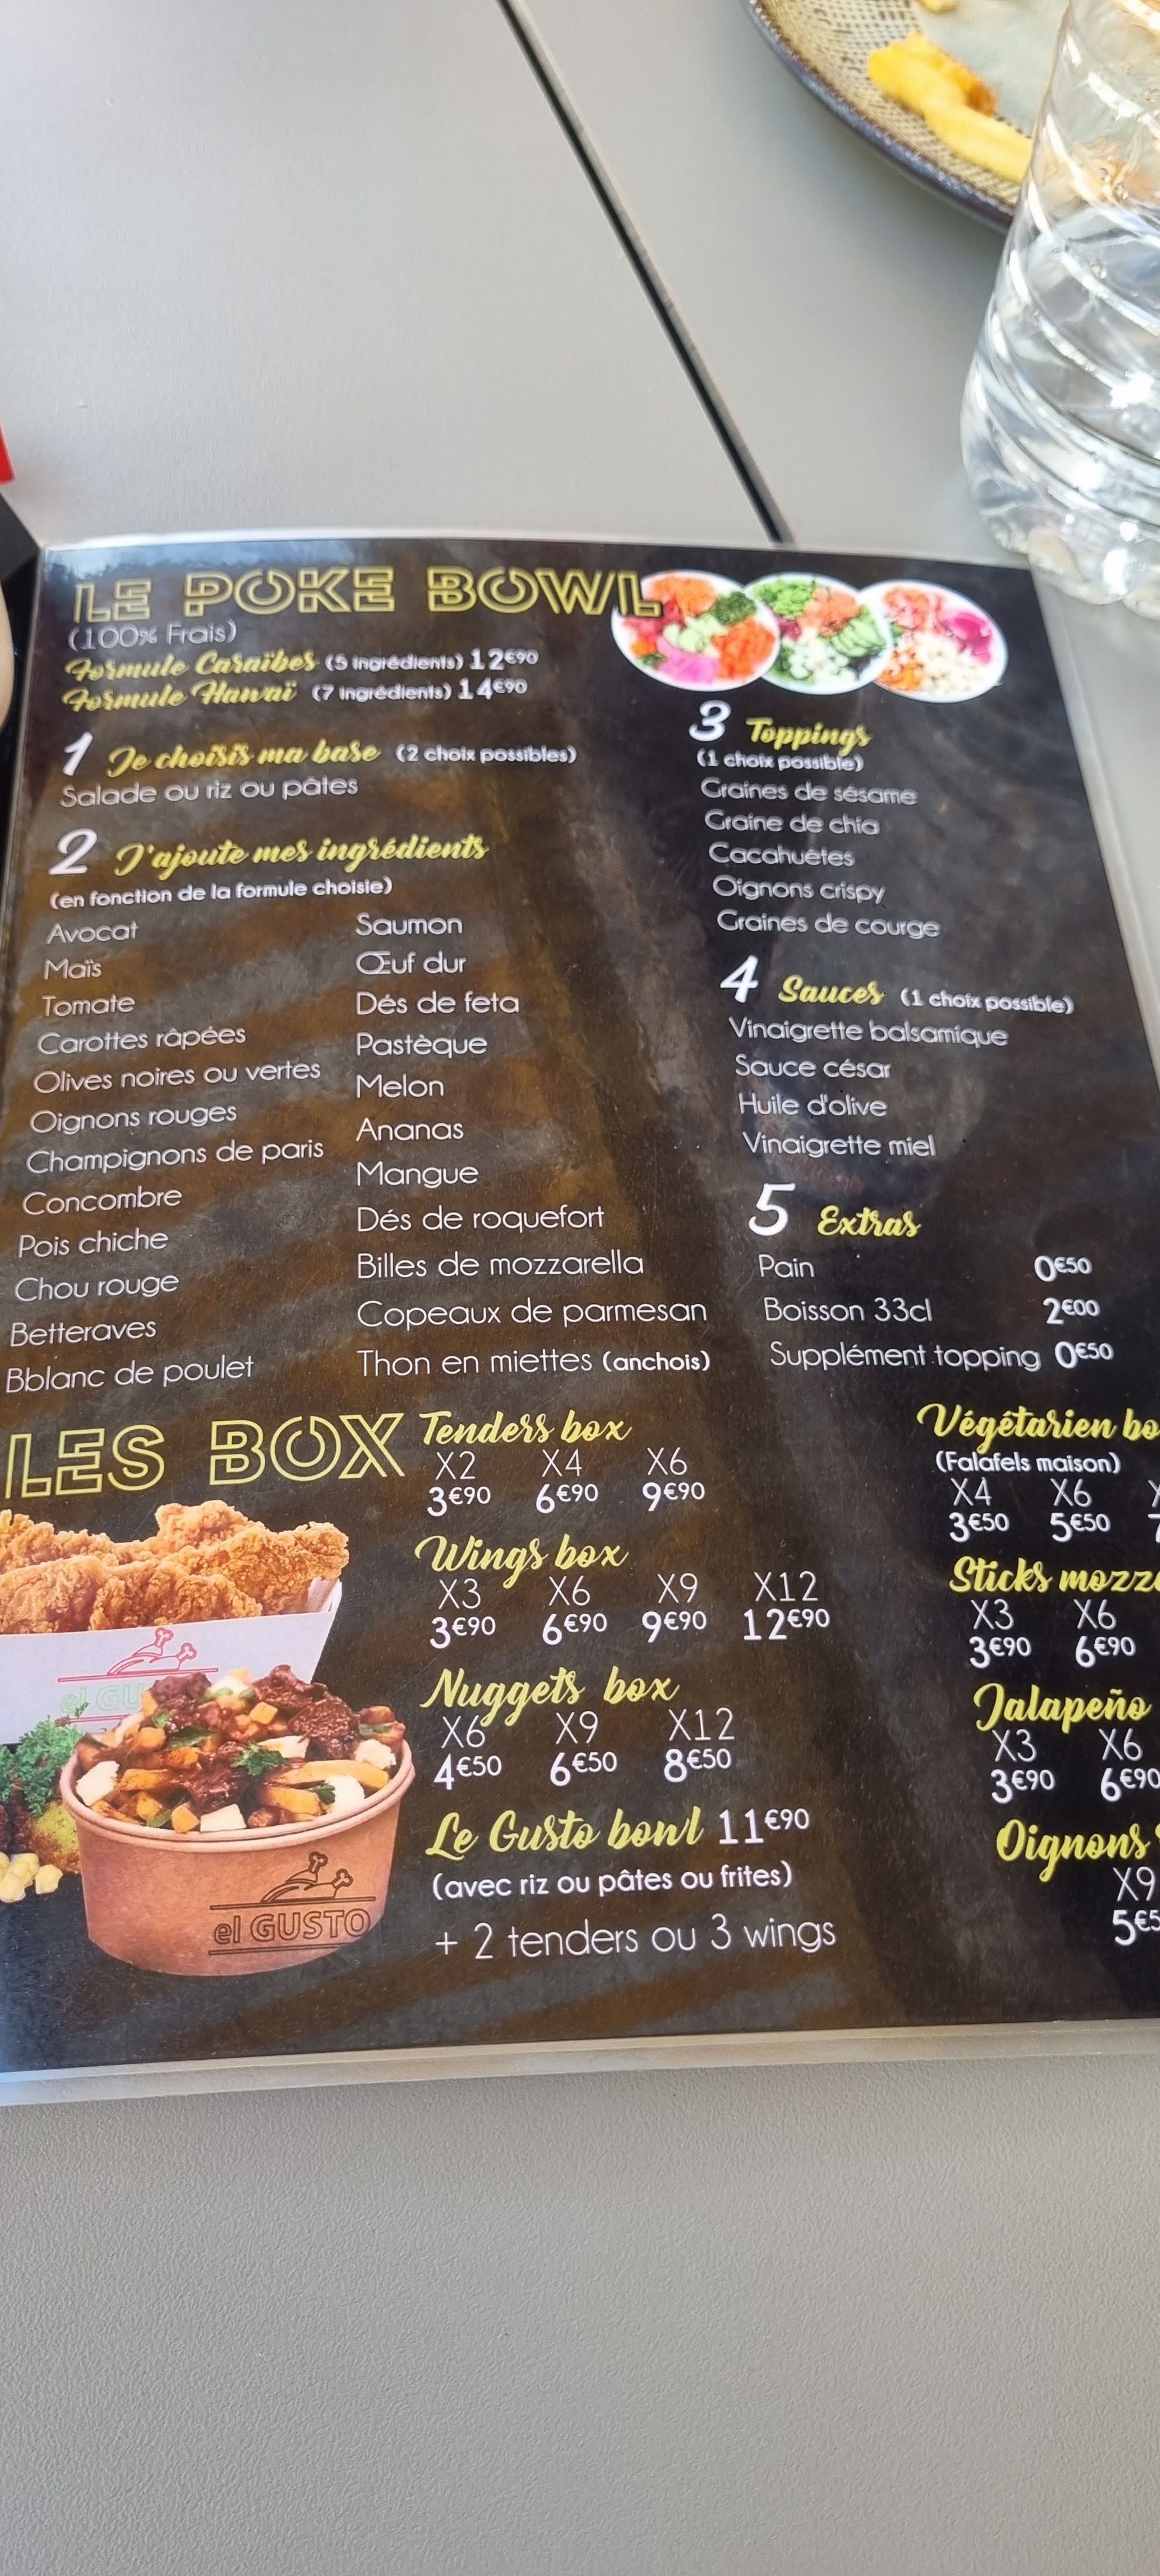 LE POKE BOWL
(100% Frais)
Formule Caraïbes (5 ingrédients) 12€90
Formule Hawaï (7 ingrédients) 14€90
1 Je choisis ma base (2 choix possibles)
Salade ou riz ou pâtes
2 J'ajoute mes ingrédients
(en fonction de la formule choisie)
Avocat
Maïs
Tomate
Carottes râpées
Olives noires ou vertes
Oignons rouges
Champignons de paris
Concombre
Pois chiche
Chou rouge
Betteraves
Bblanc de poulet
Saumon
Œuf dur
Dés de feta
Pastèque
Melon
Ananas
Mangue
Dés de roquefort
Billes de mozzarella
Copeaux de parmesan
Thon en miettes (anchois)
3 Toppings
(1 choix possible)
Graines de sésame
Graine de chia
Cacahuètes
Oignons crispy
Graines de courge
4 Sauces (1 choix possible)
Vinaigrette balsamique
Sauce césar
Huile d'olive
Vinaigrette miel
5 Extras
Pain 0€50
Boisson 33cl 2€00
Supplément topping 0€50
LES BOX
el GUSTO
Tenders box
X2 X4 X6
3€90 6€90 9€90
Wings box
X3 X6 X9 X12
3€90 6€90 9€90 12€90
Nuggets box
X6 X9 X12
4€50 6€50 8€50
Le Gusto bowl 11€90
(avec riz ou pâtes ou frites)
+ 2 tenders ou 3 wings
Végétarien bo
(Falafels maison)
X4 X6
3€50 5€50 7
Sticks mozz
X3 X6
3€90 6€90
Jalapeño
X3 X6
3€90 6€90
Oignons
X9
5€5